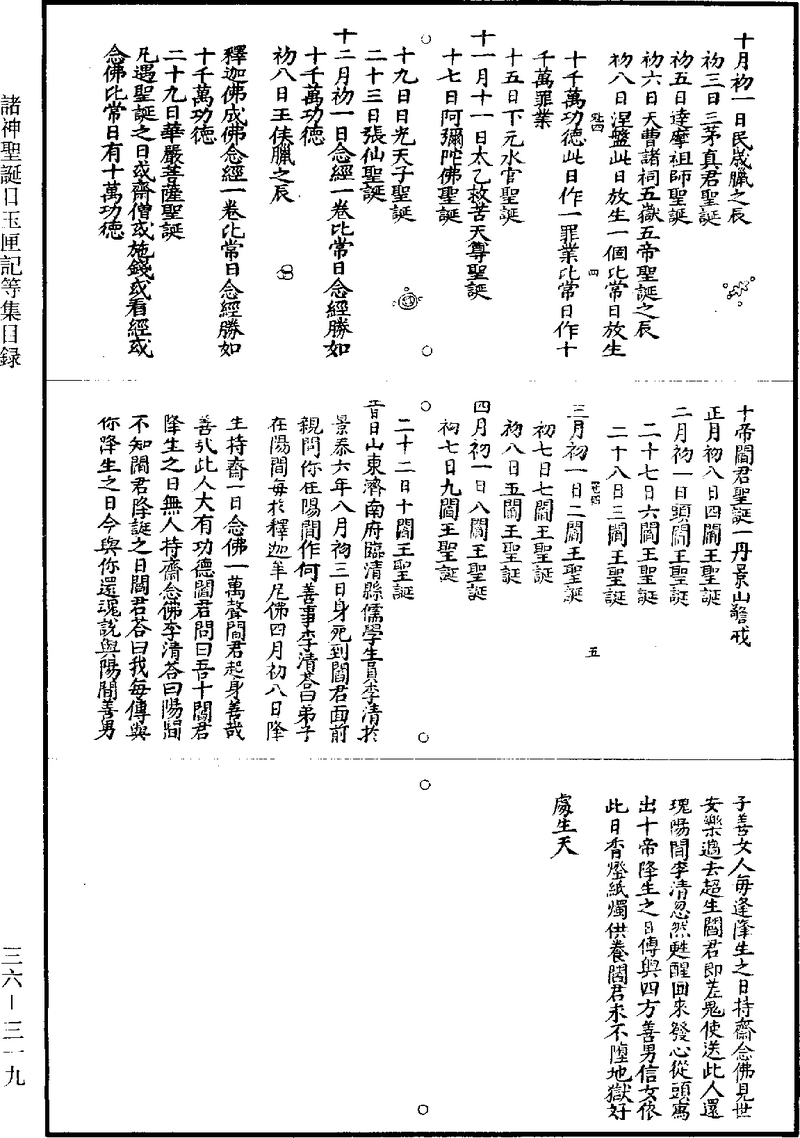 十月初一日民歲臘之辰
初三日三茅真君聖誕
初五日達摩祖師聖誕
初六日天曹諸祠五嶽五帝聖誕之辰
初八日涅盤此日放生一個比常日放生
四
十千萬功徳此日作一罪業比常日作十
千萬罪業
十五日下元水官聖誕
十一月十一日太乙救苦天尊聖誕
十七日阿彌陀佛聖誕
十九日日光天子聖誕
二十三日張仙聖誕
十二月初一日念經一卷比常日念經勝如
十千萬功徳
初八日王侯臘之辰
釋迦佛成佛念經一卷比常日念經勝如
十千萬功徳
二十九日華嚴菩薩聖誕
凡遇聖誕之日或齋僧或施錢或看經或
念佛比常日有十萬功徳
十帝閻君聖誕一丹景山警戒
正月初八日四閻王聖誕
二月初一日頭閻王聖誕
二十七日六閻王聖誕
二十八日三閻王聖誕
五
三月初一日二閻王聖誕
初七日七閻王聖誕
初八日五閻王聖誕
四月初一日八閻王聖誕
初七日九閻王聖誕
二十二日十閻王聖誕
昔日山東濟南府臨清縣儒學生員李清於
景泰六年八月初三日身死到閻君面前
親問你在陽間作何善事李清荅曰弟子
在陽間每於釋迦牟尼佛四月初八日降
生持齋一日念佛一萬聲閻君起身善哉
善哉此人大有功德閻君問曰吾十閻君
降生之日無人持齋念佛李清荅曰陽間
不知閻君降誕之日閻君荅曰我每傳與
你降生之日今與你還魂說與陽間善男
子善女人每逢降生之日持齋念佛見世
安樂過去超生閻君即差鬼使送此人還
瑰陽間李清忽然甦醒回來發心從頭寫
出十帝降生之日傳與四方善男信女依
此日香燈紙燭供養閻君永不墮地獄好
處生天
諸神聖誕日玉匣記等集目録
三六－三一九